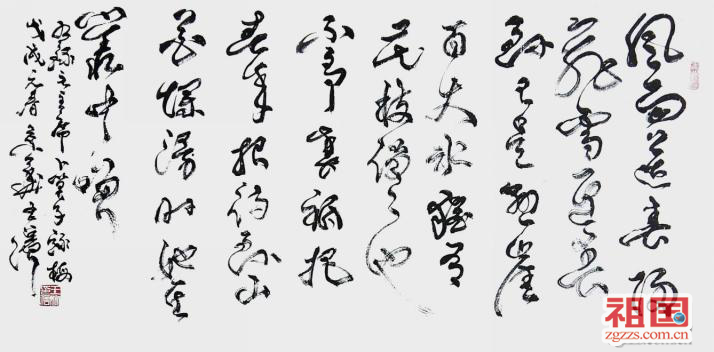 风雨送春归
飞雪迎春
到已是悬崖
百丈冰犹有
花枝俏俏也
不争春只把
春来报待到山
花烂漫时她在
丛中笑
右录毛主席卜算子咏梅
戊戌元春
祖国
zgzzs.com.cn